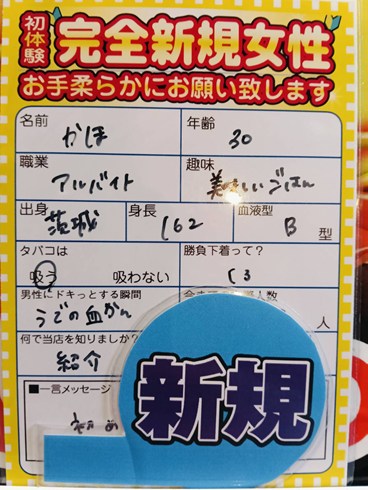 初体験
完全新規女性
お手柔らかにお願い致します
名前 かほ 年齢 30
職業 アルバイト 趣味 美味しいごはん
出身 茨城 身長 162 血液型 B 型
タバコは 吸う 吸わない 勝負下着って?
男性にドキっとする瞬間 人数
うでの血かん 人
何で当店を知りましたか?
紹介
■一言メッセージ
新規